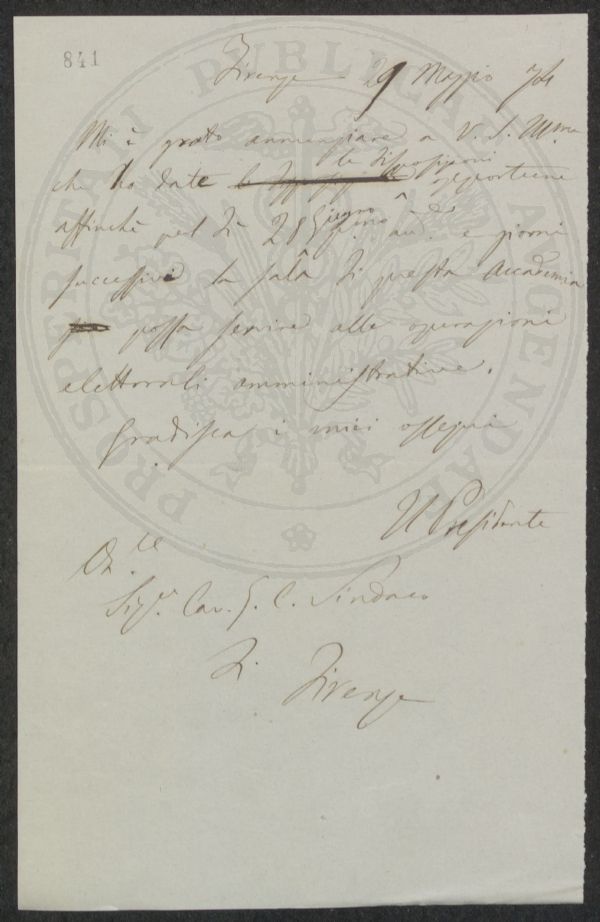 841
Firenze 29 Maggio 74
Mi è grato annunziare a V. S. Ill.ma
le disposizioni
che ho date opportune
affinchè pel dì 28 Giugno e giorni
successivi la sala di questa Accademia
possa servire alle operazioni
elettorali amministrative.
Gradisca i miei ossequi
Il Presidente
Sig.r Cav. Sindaco
di Firenze
PROSPERITATI PUBLICAE AUGENDAE